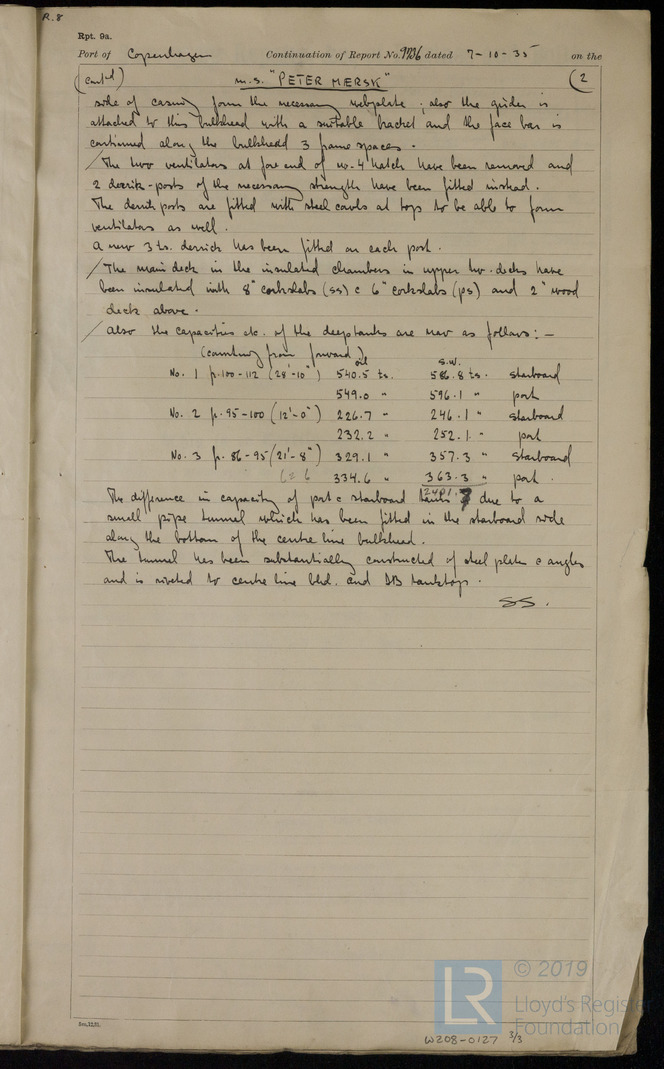 R.8
Rpt. 9a.
Port of Copenhagen Continuation of Report No. 9736 dated 7-10-35 on the
(Cont'd) m.s. "PETER MÆRSK" (2
side of casing form the necessary webplate; also the girder is
attached to this bulkhead with a suitable bracket and the face bar is
continued along the bulkhead 3 frame spaces.
/ The two ventilators at fore end of no-4 hatch have been removed and
2 derrik-posts of the necessary strength have been fitted instead.
The derrik posts are fitted with steel cowls at tops to be able to form
ventilators as well.
A new 3 ts. derrick has been fitted on each post.
/ The main deck in the insulated chambers in upper tw. decks have
been insulated with 8" corkslabs (ss) & 6" corkslabs (ps) and 2" wood
deck above.
/ Also the capacities etc. of the deeptanks are now as follows:-
(counting from forward) oil s.w.
No. 1 fr. 100-112 (28'-10") 540.5 ts. 586.8 ts. starboard
549.0 " 596.1 " port
No. 2 fr. 95-100 (12'-0") 226.7 " 246.1 " starboard
232.2 " 252.1 " port
No. 3 fr. 86-95 (21'-8") 329.1 " 357.3 " starboard
334.6 " 363.3 " port.
The difference in capacity of port & starboard tanks due to a
small pipe tunnel which has been fitted in the starboard side
along the bottom of the centre line bulkhead.
The tunnel has been substantially constructed of steel plates & angles
and is riveted to centre line bhd. and DB tanktop.
SS.
© 2019
LR
Lloyd's Register
Foundation
W208-0127 3/3